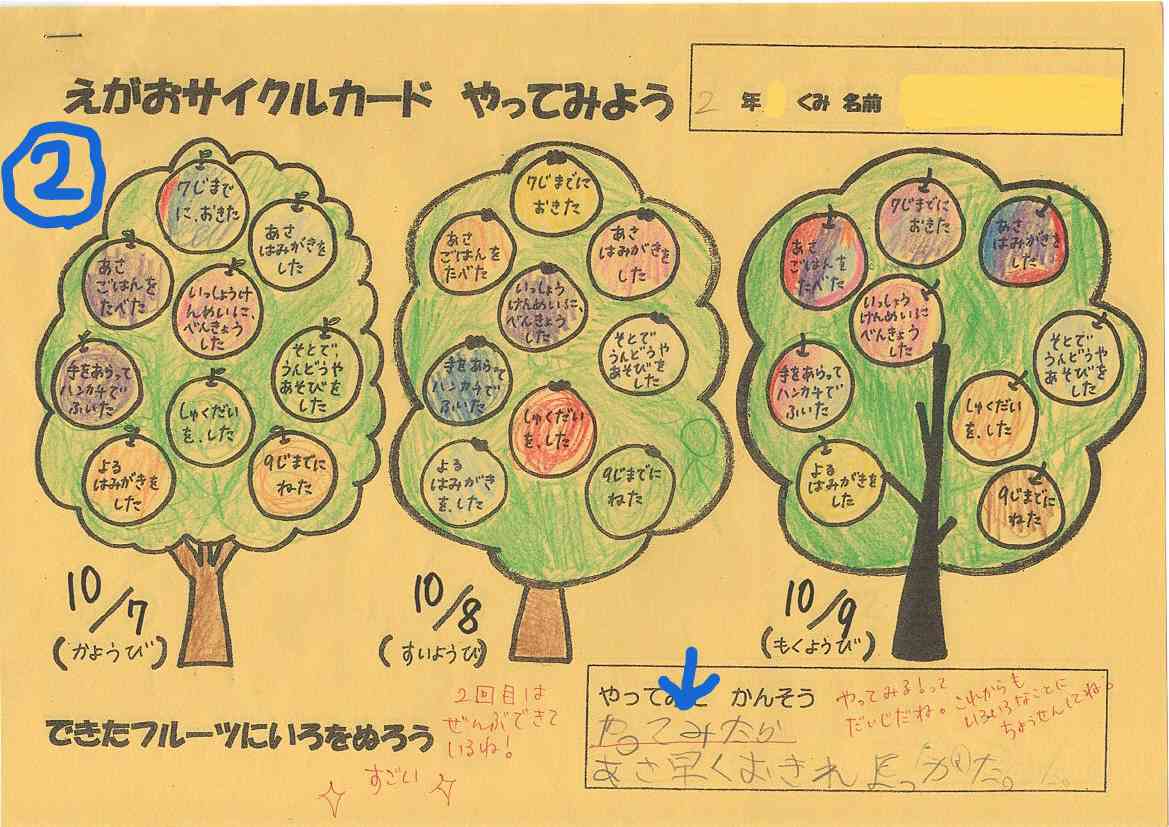 えがおサイクルカード やってみよう
2 年 くみ 名前
②
7じまで
に、おきた
あさ
はみがきを
した
あさ
ごはんを
たべた
いっしょうけ
んめいに、
べんきょう
した
手をあらって
ハンカチで
ふいた
そとで、
うんどうや
あそびを
した
しゅくだい
を、した
よる
はみがきを
した
9じまでに
ねた
10/7
(かようび)
7じまでに
おきた
あさ
ごはんを
たべた
あさ
はみがきを
した
いっしょう
けんめいに、
べんきょう
した
手をあらって
ハンカチで
ふいた
そとで、
うんどうや
あそびを
した
しゅくだい
を、した
よる
はみがき
を、した
9じまでに
ねた
10/8
(すいようび)
7じまでに
おきた
あさ
ごはんを
たべた
あさ
はみがきを
した
いっしょう
けんめいに
べんきょう
した
手をあらって
ハンカチで
ふいた
そとで、
うんどうや
あそびを
した
しゅくだい
を、した
よる
はみがきを
した
9じまでに
ねた
10/9
(もくようび)
できたフルーツにいろをぬろう
2回目は
ぜんぶできて
いるね!
すごい
やってみて かんそう
やってみたら
あさ早くおきれよかった。
やってみる!って
だいじだね。これからも
いろいろなことに
ちょうせんしてね。